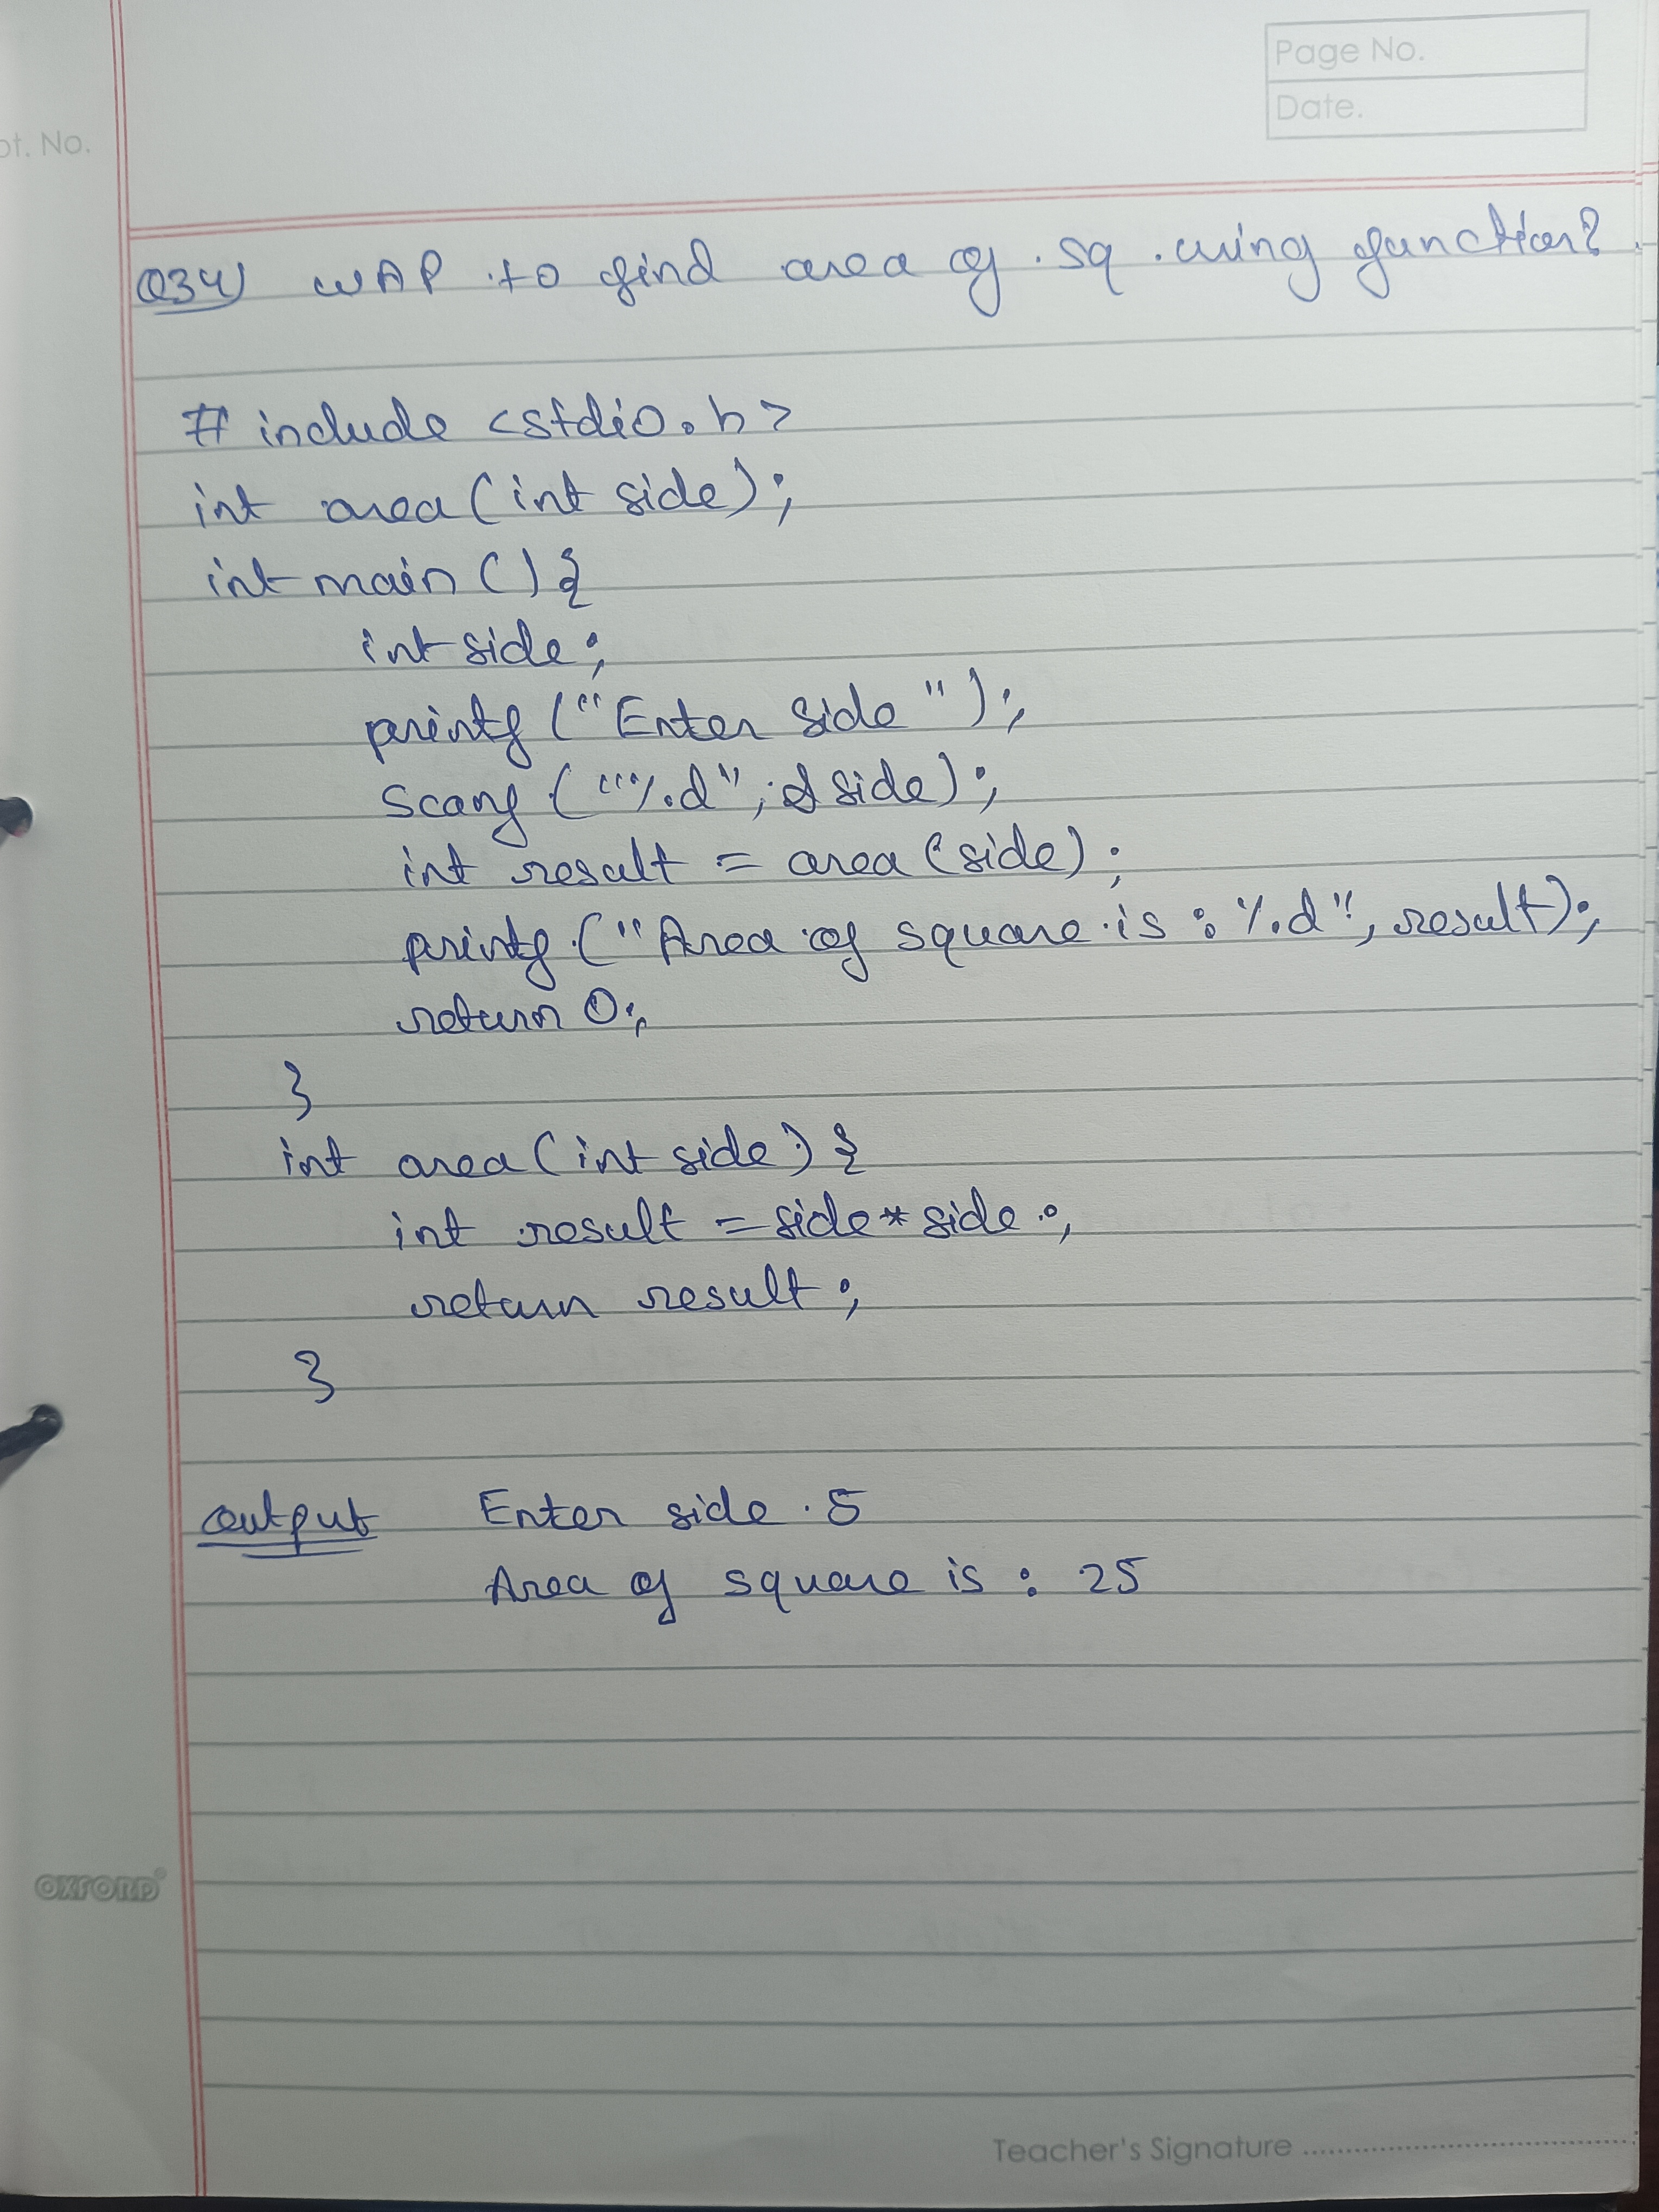 Page No.
Date.
pt. No.
Q34) WAP to find area of sq. using function?
# include <stdio.h>
int area (int side);
int main () {
int side;
printf ("Enter side ");
scanf ("%d", &side);
int result = area (side);
printf ("Area of square is : %d", result);
return 0;
}
int area (int side) {
int result = side * side;
return result;
}
output Enter side 5
Area of square is : 25
OXFORD
Teacher's Signature